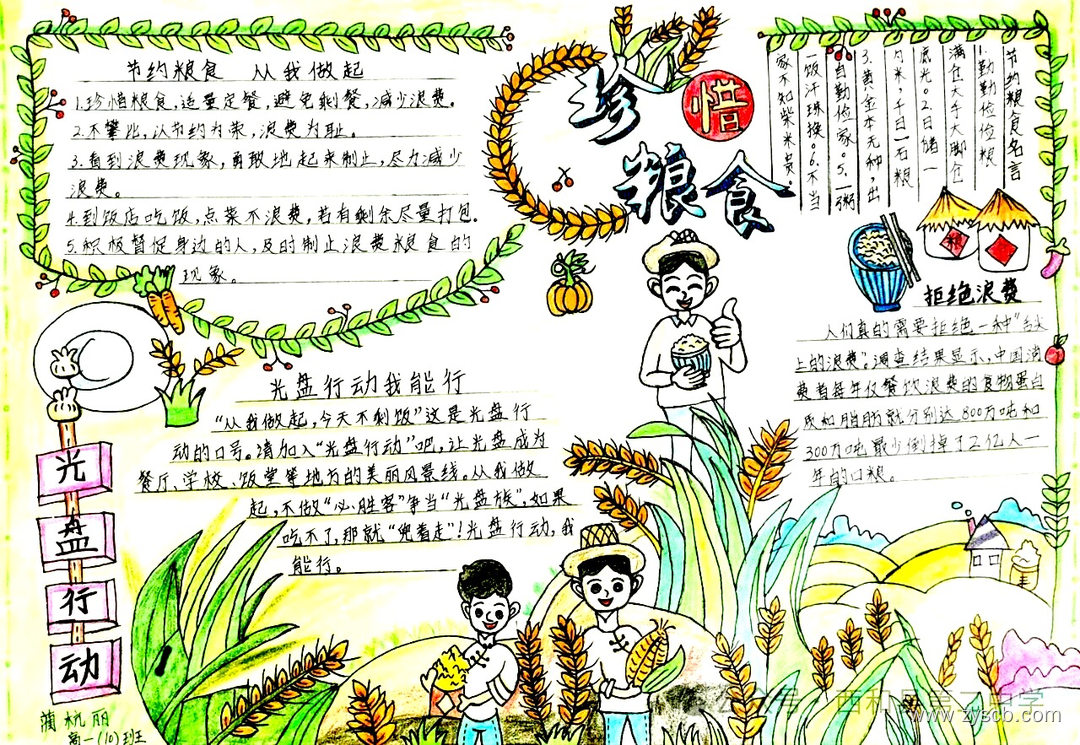 珍惜
粮食
节约粮食 从我做起
1.珍惜粮食,适量定餐,避免剩餐,减少浪费。
2.不攀比,以节约为荣,浪费为耻。
3.看到浪费现象,勇敢地起来制止,尽力减少
浪费。
4.到饭店吃饭,点菜不浪费,若有剩余尽量打包.
5.积极督促身边的人,及时制止浪费粮食的
现象。
节约粮食名言
1.勤勤俭俭粮
满仓大手大脚仓
底光。2.日储一
勺米,千日一石粮
3.黄金本无种,出
自勤俭家。5.一粥
一饭汗珠换。6.不当
家不知柴米贵
粮
拒绝浪费
人们真的需要拒绝一种“舌尖
上的浪费”。调查结果显示,中国消
费者每年仅餐饮浪费的食物蛋白
质和脂肪就分别达800万吨和
300万吨最少倒掉了2亿人一
年的口粮。
光盘行动我能行
“从我做起,今天不剩饭”这是光盘行
动的口号。请加入“光盘行动”吧,让光盘成为
餐厅、学校、饭堂等地方的美丽风景线。从我做
起,不做“必胜客”争当“光盘族”,如果
吃不了,那就“兜着走”!光盘行动,我
能行。
光
盘
行
动
高一(10)班
www.zyscb.com